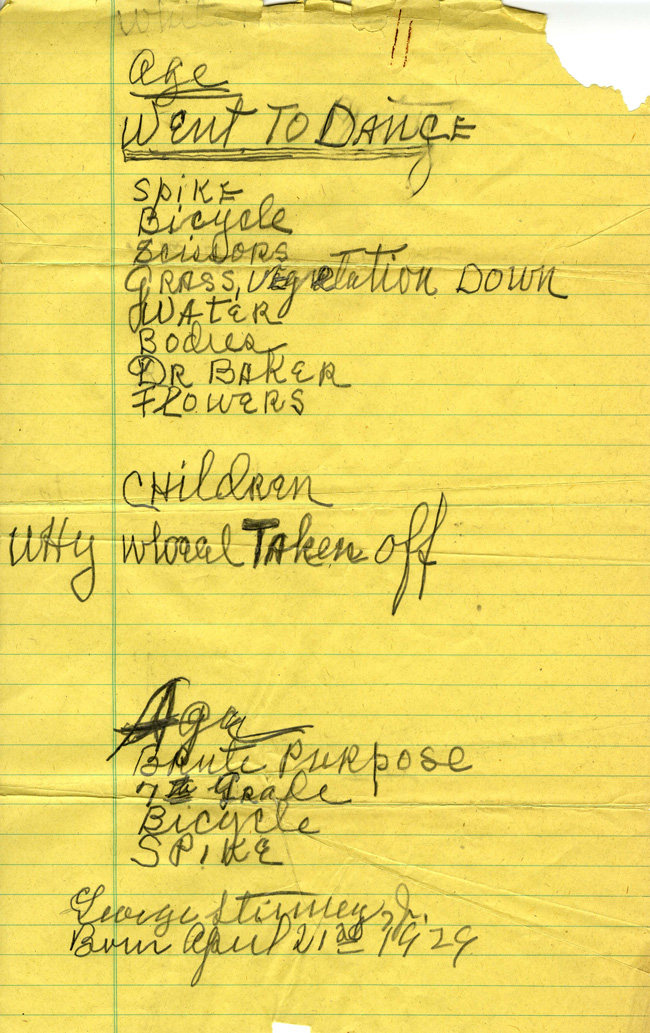 11
Age
WENT TO DANCE
SPIKE
Bicycle
SCISSORS
GRASS, VEgetation DOWN
WATER
Bodies
DR BAKER
FLOWERS
CHildREN
WHy wheel TAken off
Age
BRute PURPOSE
7th Grade
Bicycle
SPIKE
George Stinney, Jr.
Born April 21st 1929